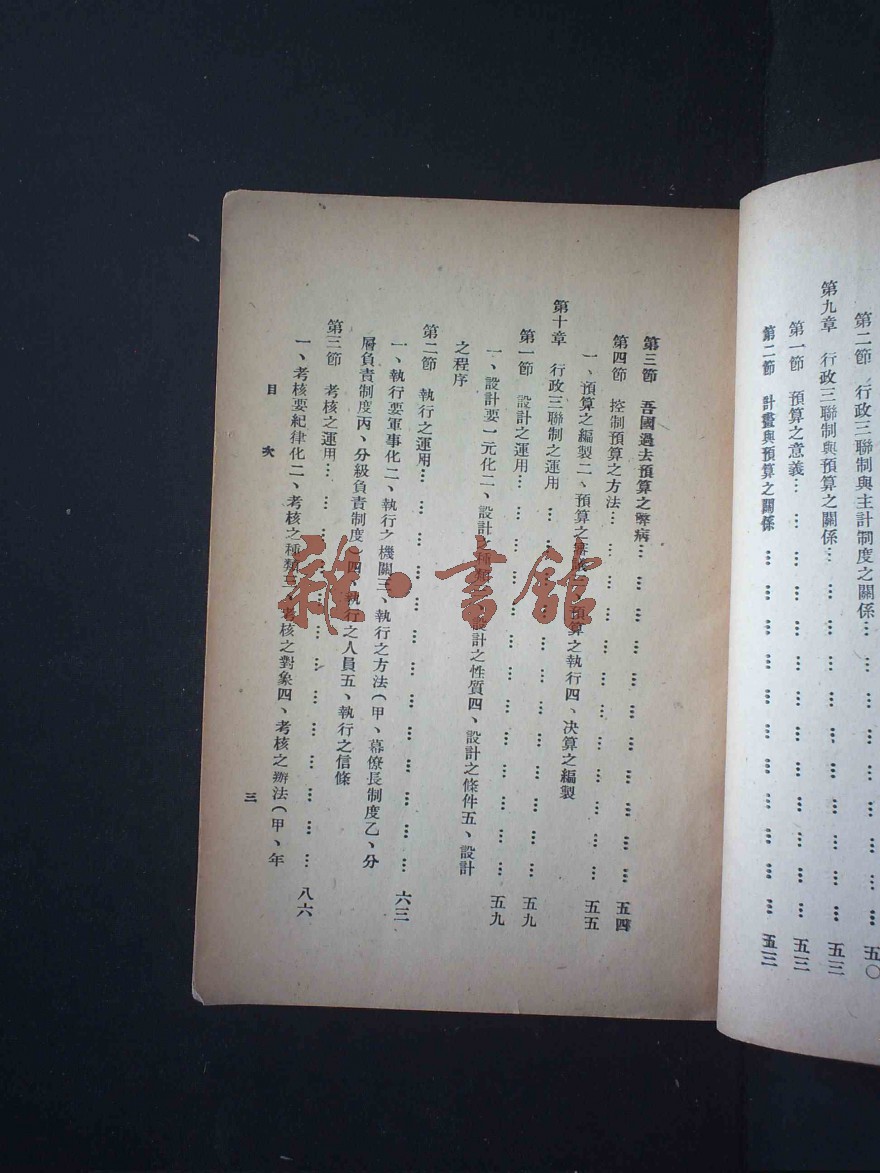 第二節　行政三聯制與主計制度之關係… … … … … … … … … 五〇
第九章　行政三聯制與預算之關係… … … … … … … … … … 五三
第一節　預算之意義… … … … … … … … … … … … … 五三
第二節　計畫與預算之關係 … … … … … … … … … … … 五三
第三節　吾國過去預算之弊病… … … … … … … … … … … … 五四
第四節　控制預算之方法… … … … … … … … … … … … … 五五
一、預算之編製二、預算之 預算之執行四、决算之編製
第十章　行政三聯制之運用 … … … … … … … … … … … … … 五九
第一節　設計之運用… … … … … … … … … … … … … … 五九
一、設計要一元化二、設計之種類 設計之性質四、設計之條件五、設計
之程序
第二節　執行之運用… … … … … … … … … … … … … … 六三
一、執行要軍事化二、執行之機關三、執行之方法（甲、幕僚長制度乙、分
層負責制度丙、分級負責制度）四、執行之人員五、執行之信條
第三節　考核之運用… … … … … … … … … … … … … … 八六
一、考核要紀律化二、考核之種類三、考核之對象四、考核之辦法（甲、年
目次
三
雜·書館